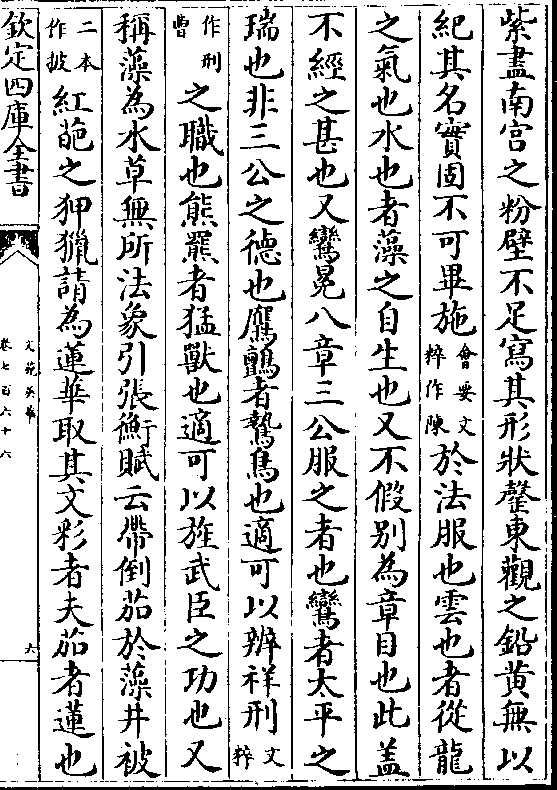 紫盡南宫之粉壁不足寫其形狀罄東觀之鉛黄無以
紀其名實固不可畢施會要文粹作陳於法服也雲也者從龍
之氣也水也者藻之自生也又不假别為章目也此蓋
不經之甚也又鸞冕八章三公服之者也鸞者太平之
瑞也非三公之德也鷹鸇者鷙鳥也適可以辨祥刑文粹
作刑曹之職也熊羆者猛獸也適可以旌武臣之功也又
稱藻為水草無所法象引張衡賦云帶倒茄於藻井被
二本作披紅葩之狎獵請為蓮華取其文彩者夫茄者蓮也
欽定四庫全書
文苑英華
卷七百六十六
六